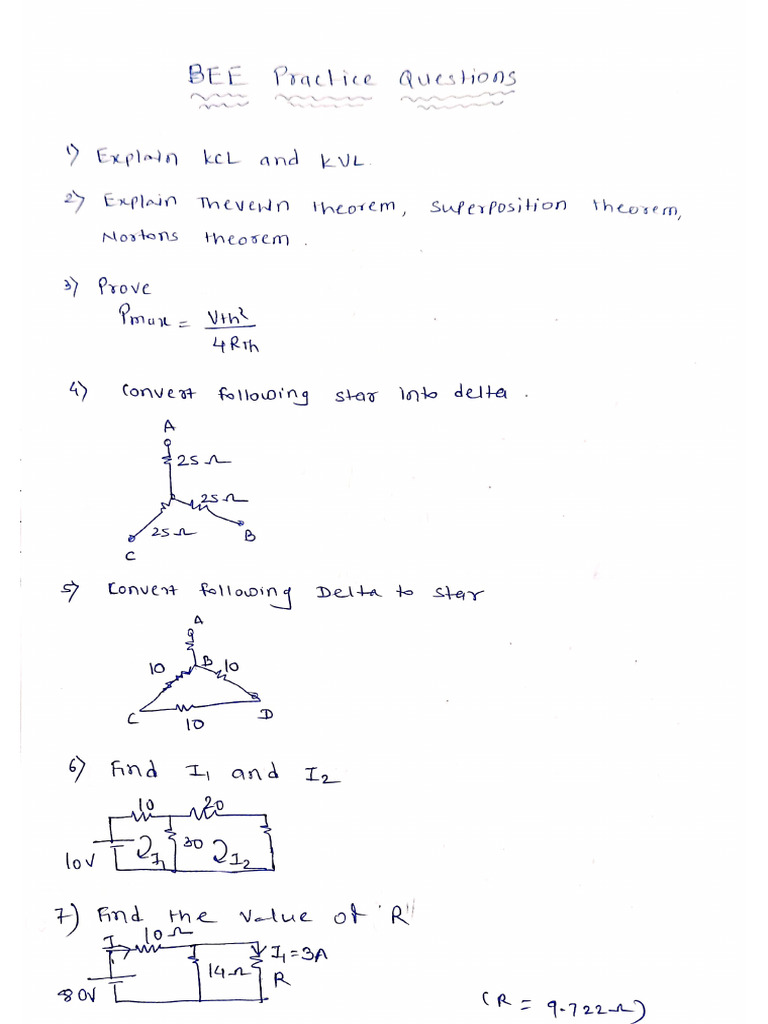 BEE Practice Questions
1) Explain KCL and KVL.
2) Explain Thevenin theorem, Superposition theorem,
Nortons theorem.
3) Prove
Pmax = Vth²
4Rth
4) Convert following star into delta.
A
25Ω
25Ω
25Ω
B
C
5) Convert following Delta to star
A
10 B 10
C D
10
6) Find I1 and I2
10 20
30
10V I1 I2
7) Find the value of 'R'
I 10Ω
I1=3A
14Ω R
80V
(R = 9.722Ω)